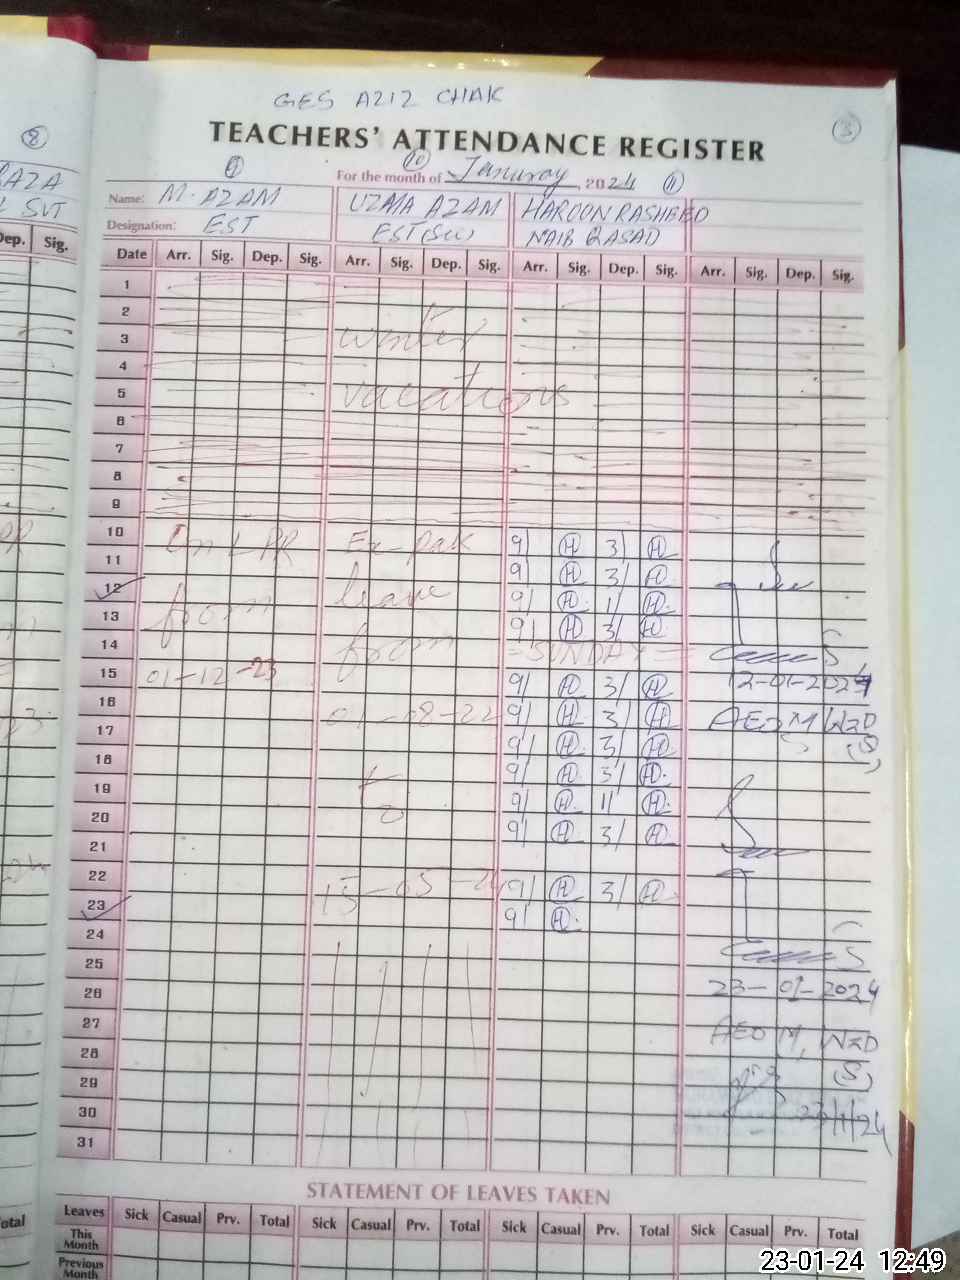 GES AZIZ CHAK
3
TEACHERS' ATTENDANCE REGISTER
For the month of January, 2024
8
9
10
11
RAZA
SVT
Dep. Sig.
Name: M. AZAM UZMA AZAM HAROON RASHEED
Designation: EST EST(Sci) NAIB QASAD
Date Arr. Sig. Dep. Sig. Arr. Sig. Dep. Sig. Arr. Sig. Dep. Sig. Arr. Sig. Dep. Sig.
1
2
3 winter
4
5 vacations
6
7
8
9
10 On LPR Ex-Pak 9/ H 3/ H
11 9/ H 3/ H
12 from leave 9/ H 1/ H
13 9/ H 3/ H
14 from = SUNDAY =
15 01-12-23 9/ H 3/ H 12-01-2024
16 01-08-22 9/ H 3/ H AEO M WZD
17 9/ H 3/ H (S)
18 9/ H 3/ H
19 to 9/ H 1/ H
20 9/ H 3/ H
21
22 15-05-24 9/ H 3/ H
23 9/ H
24
25
26 23-01-2024
27 AEO M, WZD
28 (S)
29
30 23/1/24
31
STATEMENT OF LEAVES TAKEN
Leaves Sick Casual Prv. Total Sick Casual Prv. Total Sick Casual Prv. Total Sick Casual Prv. Total
This Month
Previous Month
Total
23-01-24 12:49